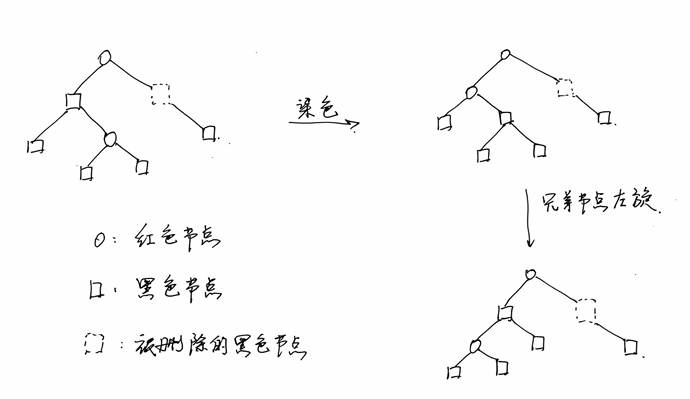 染色
兄弟节点左旋
O：红色节点
口：黑色节点
：被删除的黑色节点